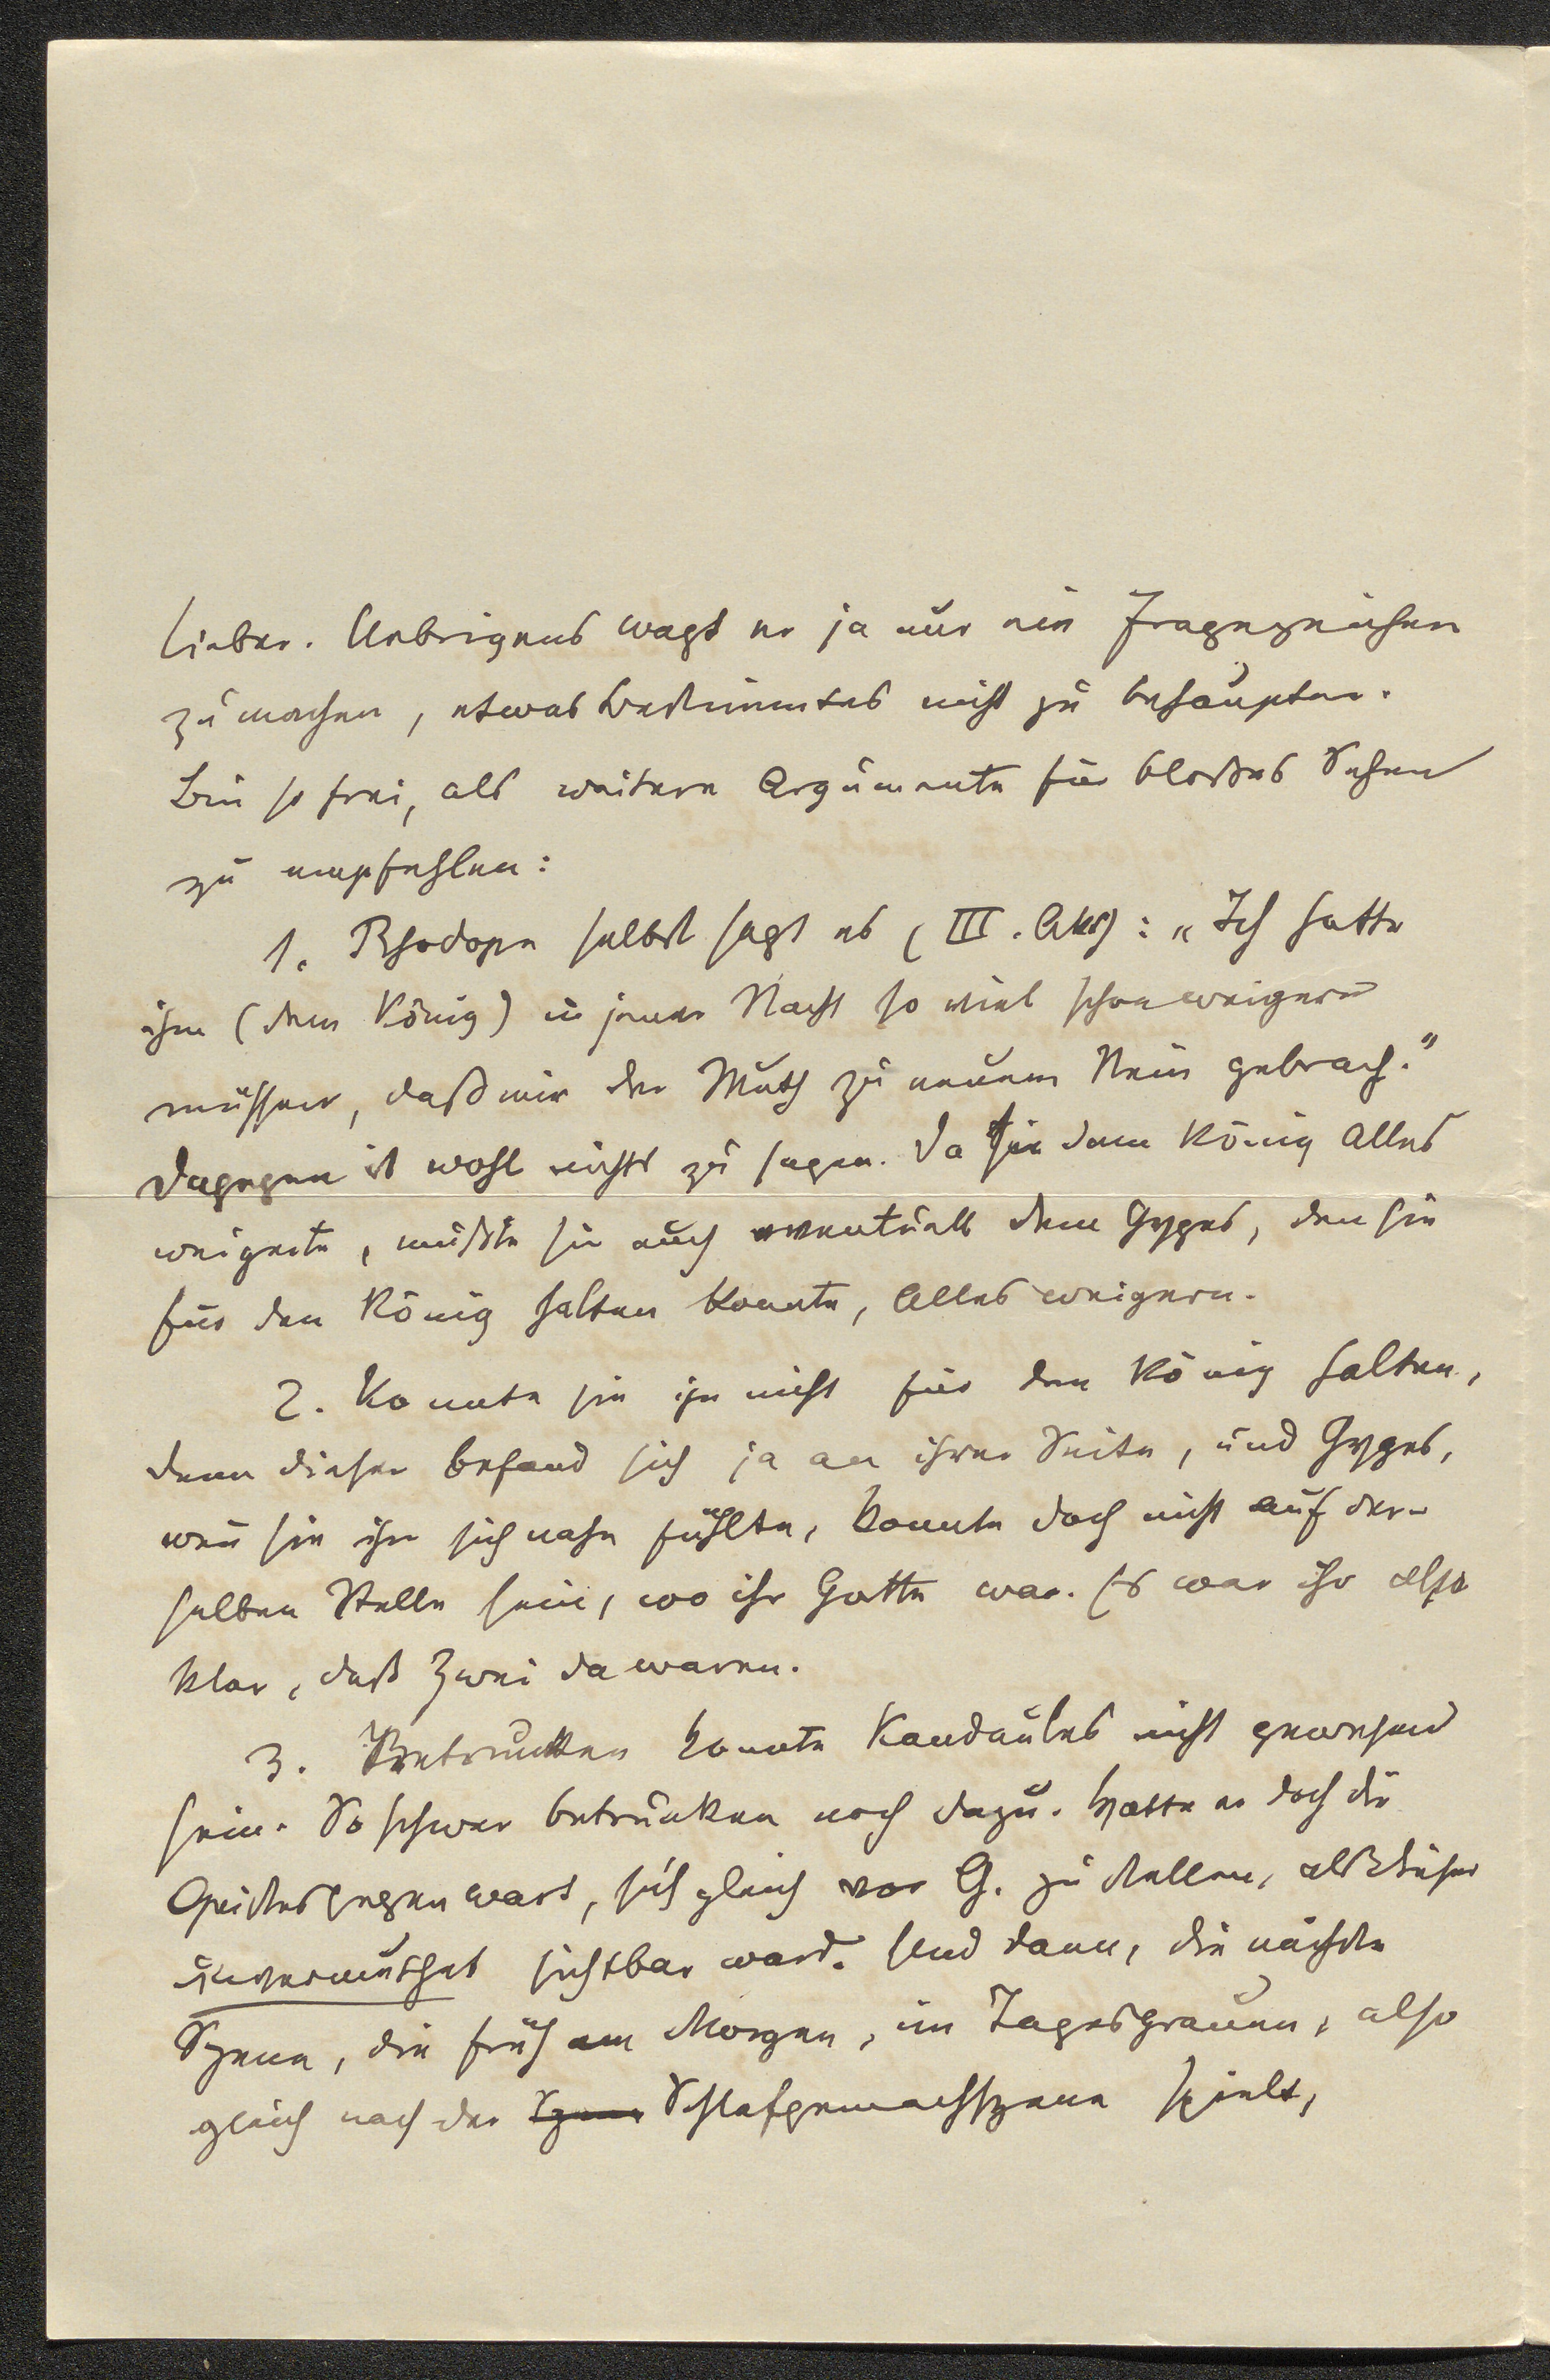 lieber. Uebrigens wagt er ja nur ein Fragezeichen
zu machen, etwas Bestimmtes nicht zu behaupten.
Bin so frei, als weitere Argumente für bloßes Sehen
zu empfehlen:
1. Rhodope selbst sagt es (III. Akt): „Ich hatte
ihm (dem König) in jener Nacht so viel schon weigern
müssen, daß mir der Muth zu neuem Nein gebrach."
Dagegen ist wohl nichts zu sagen. Da sie dem König Alles
weigerte, mußte sie auch eventuell dem Gyges, den sie
für den König halten konnte, Alles weigern.
2. Konnte sie ihn nicht für den König halten,
denn dieser befand sich ja an ihrer Seite, und Gyges,
wenn sie ihn sich nahe fühlte, konnte doch nicht auf der-
selben Stelle sein, wo ihr Gatte war. Es war ihr also
klar, daß Zwei da waren.
3. Betrunken konnte Kandaules nicht gewesen
sein. So schwer betrunken noch dazu. Hatte er doch die
Geistesgegenwart, sich gleich vor G. zu stellen, als dieser
unvermuthet sichtbar ward. Und dann, die nächste
Szene, die früh am Morgen, im Tagesgrauen, also
gleich nach der Szene Schlafgemachszene spielt,